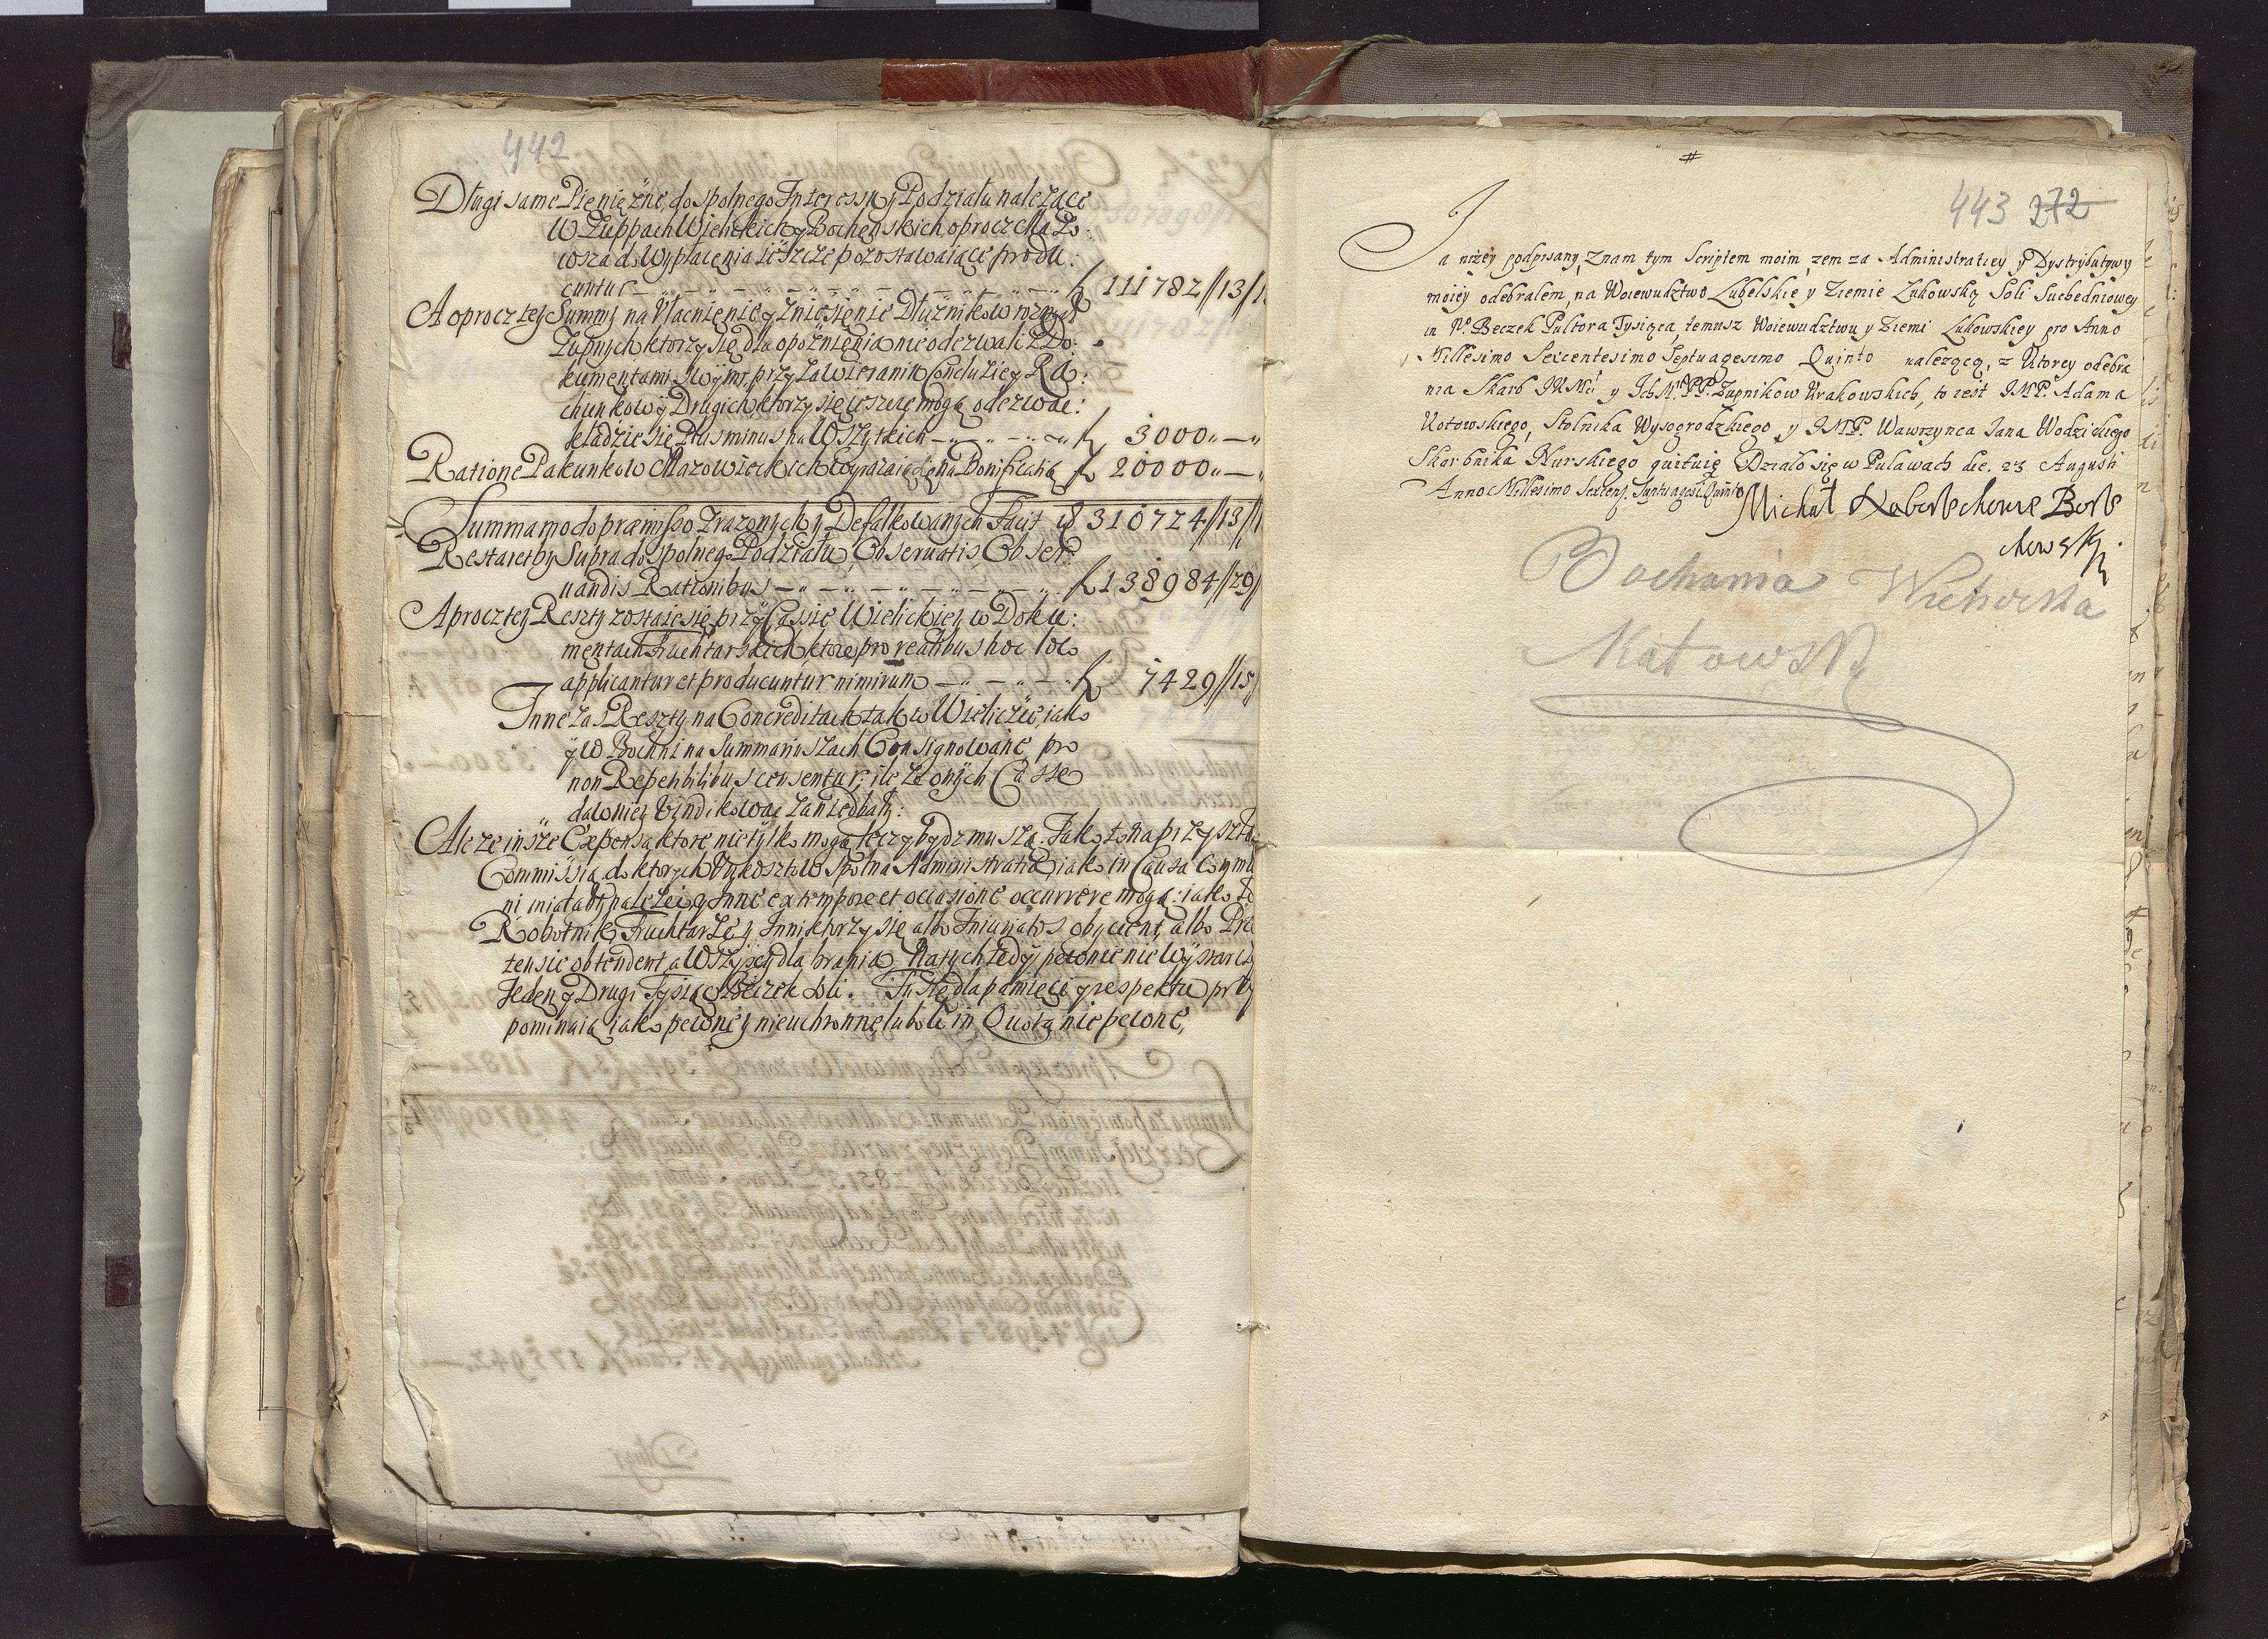 442
Długi same Pieniężne, do spolnego Interessu y Podziału należące
W Zuppach Wielickich y Bochenskich, oprocz Mazo-
wsza do Wypłacenia ieszcze pozostawaiące produ:
cuntur f 111782//13/
A oprocz tey Summy na Vłacnienie y Zniesienie Dłużnikow roznych
Zupnych ktorzy się dla opoznienia nie odezwali z Do:
kumentami Swymi, przy Zawieraniu Conclusiey Ra:
chunkow y Drugich, ktorzy się ieszcze mogą odezwać:
kładzie się Plus minus na Wszytkich f 3000
Ratione Pakunkow Mazowieckich Bonificatią f 20000
Summa modo præmisso Zrazonych y Defalkowanych Facit f 310724//13//
Restaret by Supra do spolnego Podziału, Observatis, Obser:
uandis Rationibus f 138984//29/
A procz tey Reszty zostaie się przy Cassie Wielickiey w Doku:
mentach Fruchtarskich, ktore pro realibus hoc loco
applicantur et producuntur nimirum f 7429//15/
Inne zas Reszty na Concreditach tak w Wieliczce, iako
y W Bochni na Summaryuszach Consignowane pro
non Repetibilibus censentur, ile ze onych Casse
dawniey Vindikować zaniedbały:
Ale ze insze Expensa, ktore nie tylko mogą, lecz y bydz muszą. Jako to na przyszłą
Commissią, do ktorych Wykosztow Spolna Administratia, iako in Causa Commu
ni, miałaby należeć, y Inne ex tempore et occasione occurrere mogą: iako to
Robotnik, Fruchtarze y Inni ktorzy się albo Iniuriatos obycient, albo Pre
tensie obtendent a Wszyscy dla brania Na tych tedy pewnie nie Wystarczy
Jeden y Drugi Tysiąc Beczek Soli. Tu się dla pamięci y respektu przy
pominaią iako pewne y nieuchronne, lubo li in Quota nie pewne,
Długi
#
443 272
Ja niżey podpisany, Znam tym Scriptem moim, zem za Administratiey y Dystrybutywy
moiey odebrałem, na Woiewudztwo Lubelskie y Ziemie Łukowską Soli Suchedniowey
in No. Beczek Pułtora Tysiąca, temusz Woiewudztwu y Ziemi Łukowskiey pro Anno
Millesimo Sexcentesimo Septuagesimo Quinto należącą, z Ktorey odebra
nia Skarb JKMci y Ich MPP. Zupnikow Krakowskich, to iest JMP. Adama
Kotowskiego, Stolnika Wysogrodzkiego y JMP. Wawrzynca Jana Wodzickiego
Skarbnika Nurskiego quituię Działo się w Puławach die. 23 Augusti
Anno Millesimo Sexcens. Septuages. Quinto
Michał
chowsky
Bochania Wielicka
Kotowski